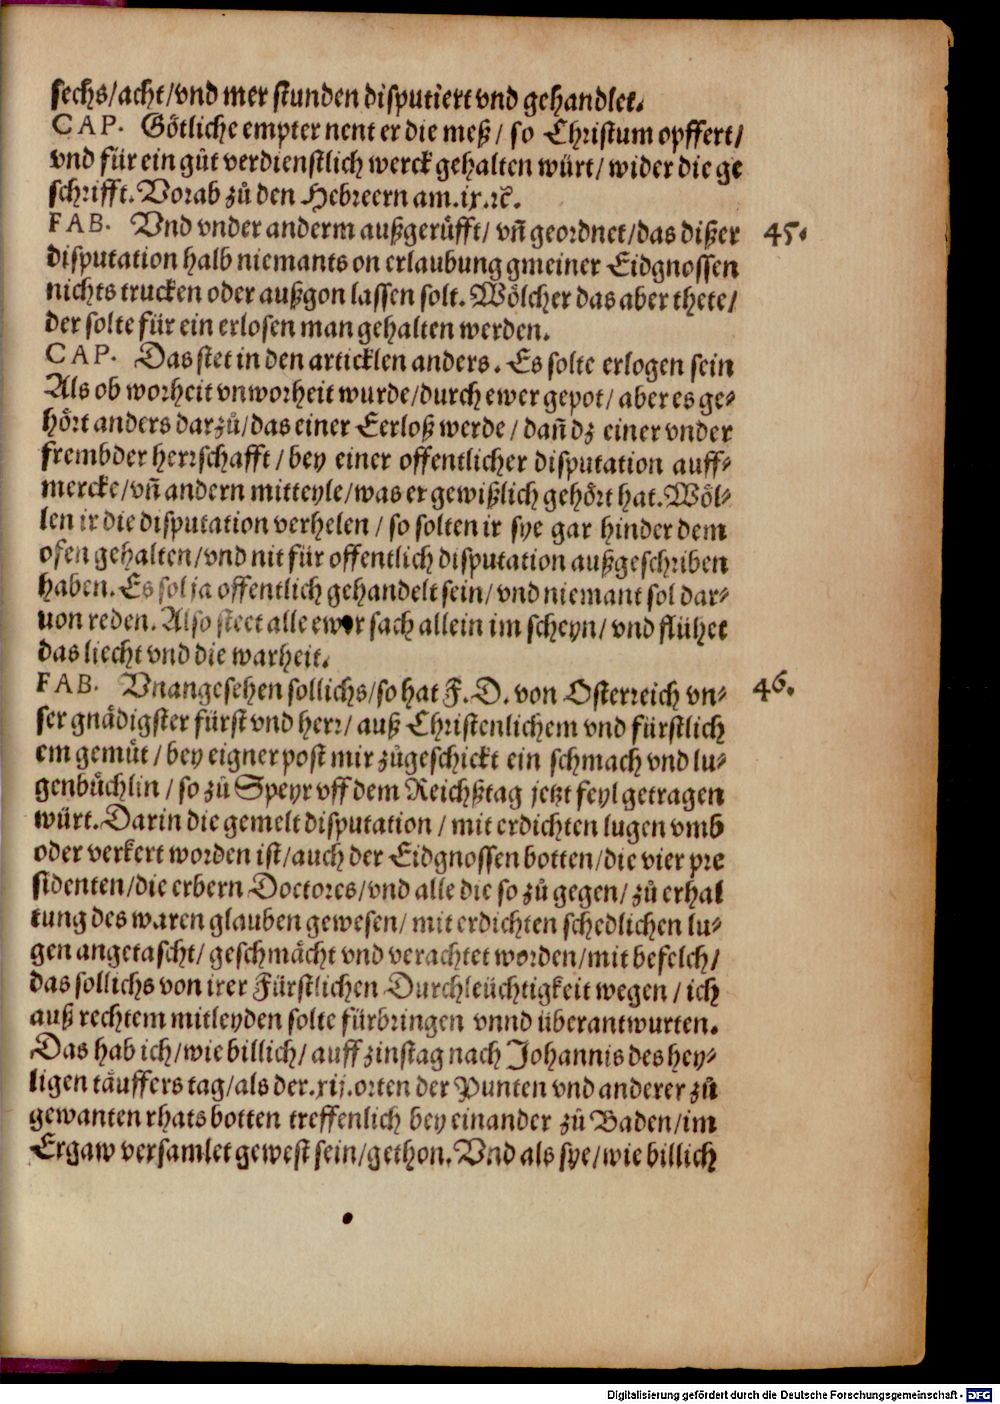 sechs/acht/vnd mer stunden disputiert vnd gehandlet.
CAP. Götliche empter nent er die meß/ so Christum opffert/
vnd für ein gůt verdienstlich werck gehalten würt/ wider die ge
schrifft. Vorab zů den Hebreern am.ix.ꝛc̃.
FAB. Vnd vnder anderm außgerůfft/ vñ geordnet/das dißer 45.
disputation halb niemants on erlaubung gmeiner Eidgnossen
nichts trucken oder außgon lassen solt. Wölcher das aber thete/
der solte für ein erlosen man gehalten werden.
CAP. Das stet in den articklen anders. Es solte erlogen sein
Als ob worheit vnworheit wurde/durch ewer gepot/ aber es ge-
hört anders darzů/das einer Eerloß werde/ dañ dz einer vnder
frembder herrschafft/bey einer offentlicher disputation auff-
mercke/vñ andern mitteyle/was er gewißlich gehört hat. Wöl-
len ir die disputation verhelen/ so solten ir sye gar hinder dem
ofen gehalten/vnd nit für offentlich disputation außgeschriben
haben. Es sol ja offentlich gehandelt sein/ vnd niemant sol dar-
uon reden. Also steet alle ewer sach allein im scheyn/ vnd flühet
das liecht vnd die warheit.
FAB. Vnangesehen sollichs/so hat F. D. von Osterreich vn- 46.
ser gnädigster fürst vnd herr/ auß Christenlichem vnd fürstlich
em gemüt/bey eigner post mir zůgeschickt ein schmach vnd lu-
genbůchlin/ so zů Speyr vff dem Reichßtag jetzt feyl getragen
würt. Darin die gemelt disputation/ mit erdichten lugen vmb
oder verkert worden ist/auch der Eidgnossen botten/die vier pre
sidenten/die erbern Doctores/vnd alle die so zů gegen/ zů erhal
tung des waren glauben gewesen/ mit erdichten schedlichen lu-
gen angetascht/ geschmächt vnd verachtet worden/mit befelch/
das sollichs von irer Fürstlichen Durchleüchtigkeit wegen/ ich
auß rechtem mitleyden solte fürbringen vnnd überantwurten.
Das hab ich/wie billich/ auff zinstag nach Johannis des hey-
ligen täuffers tag/als der.xij.orten der Punten vnd anderer zů
gewanten rhats botten treffenlich bey einander zů Baden/im
Ergaw versamlet gewest sein/gethon. Vnd als sye/wie billich
Digitalisierung gefördert durch die Deutsche Forschungsgemeinschaft - DFG